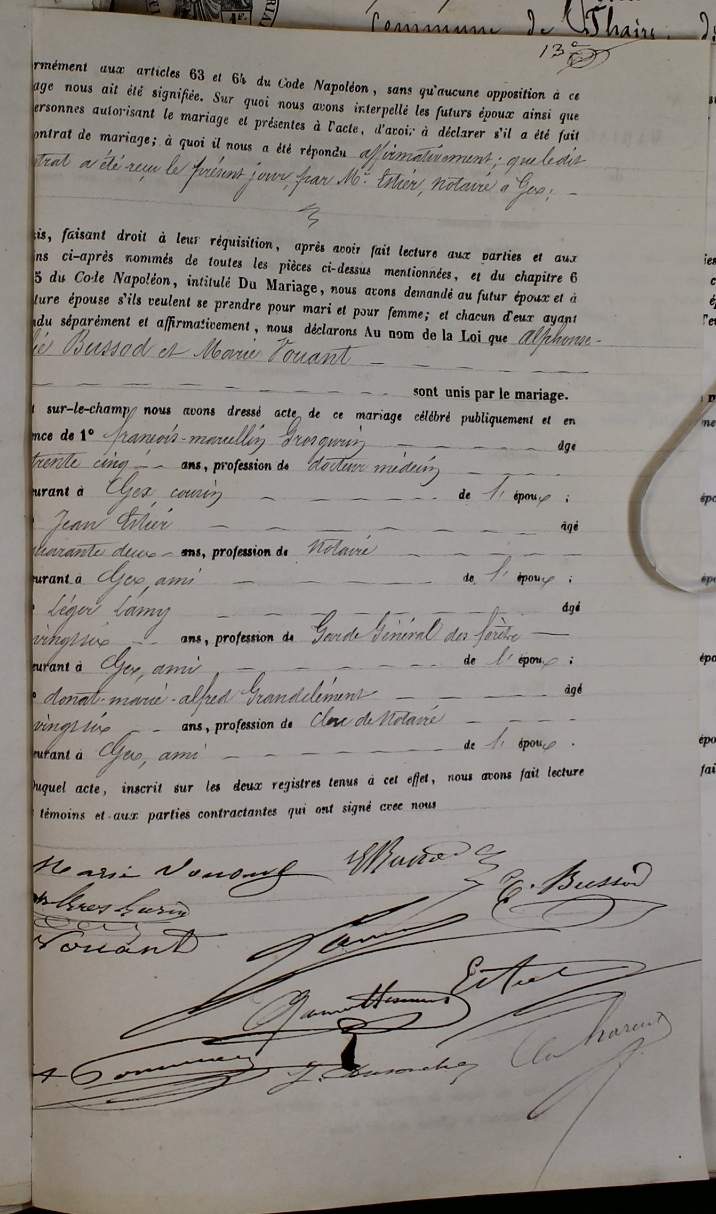 Commune de Thoiry
13e
rmément aux articles 63 et 64 du Code Napoléon, sans qu'aucune opposition à ce
age nous ait été signifiée. Sur quoi nous avons interpellé les futurs époux ainsi que
ersonnes autorisant le mariage et présentes à l'acte, d'avoir à déclarer s'il a été fait
ontrat de mariage; à quoi il nous a été répondu affirmativement; que le dit
trat a été reçu le présent jour, par Me Estier, notaire à Gex; -
is, faisant droit à leur réquisition, après avoir fait lecture aux parties et aux
ns ci-après nommés de toutes les pièces ci-dessus mentionnées, et du chapitre 6
5 du Code Napoléon, intitulé Du Mariage, nous avons demandé au futur époux et à
ture épouse s'ils veulent se prendre pour mari et pour femme; et chacun d'eux ayant
ndu séparément et affirmativement, nous déclarons Au nom de la Loi que Alphonse-
Bussod et Marie Vouant
sont unis par le mariage.
t sur-le-champ nous avons dressé acte de ce mariage célébré publiquement et en
nce de 1° françois-marcellin Grosgurin âgé
trente cinq ans, profession de docteur médecin
eurant à Gex, cousin de l' époux ;
Jean Estier âgé
quarante deux ans, profession de Notaire
eurant à Gex, ami de l' époux ;
Léger Lamy âgé
vingt six ans, profession de Garde Général des forêts
eurant à Gex, ami de l' époux ;
donat-marie-alfred Grandclément âgé
vingt six ans, profession de clerc de Notaire
eurant à Gex, ami de l' époux .
Duquel acte, inscrit sur les deux registres tenus à cet effet, nous avons fait lecture
témoins et aux parties contractantes qui ont signé avec nous
Marie Vouant
E. Bussod
Grosgurin
Vouant
Lamy
Estier